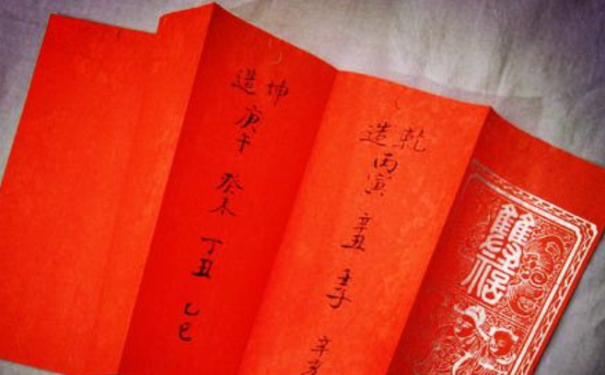 乾造
丙寅 辛丑 壬子 辛
坤造
庚午 癸未 丁丑 乙巳